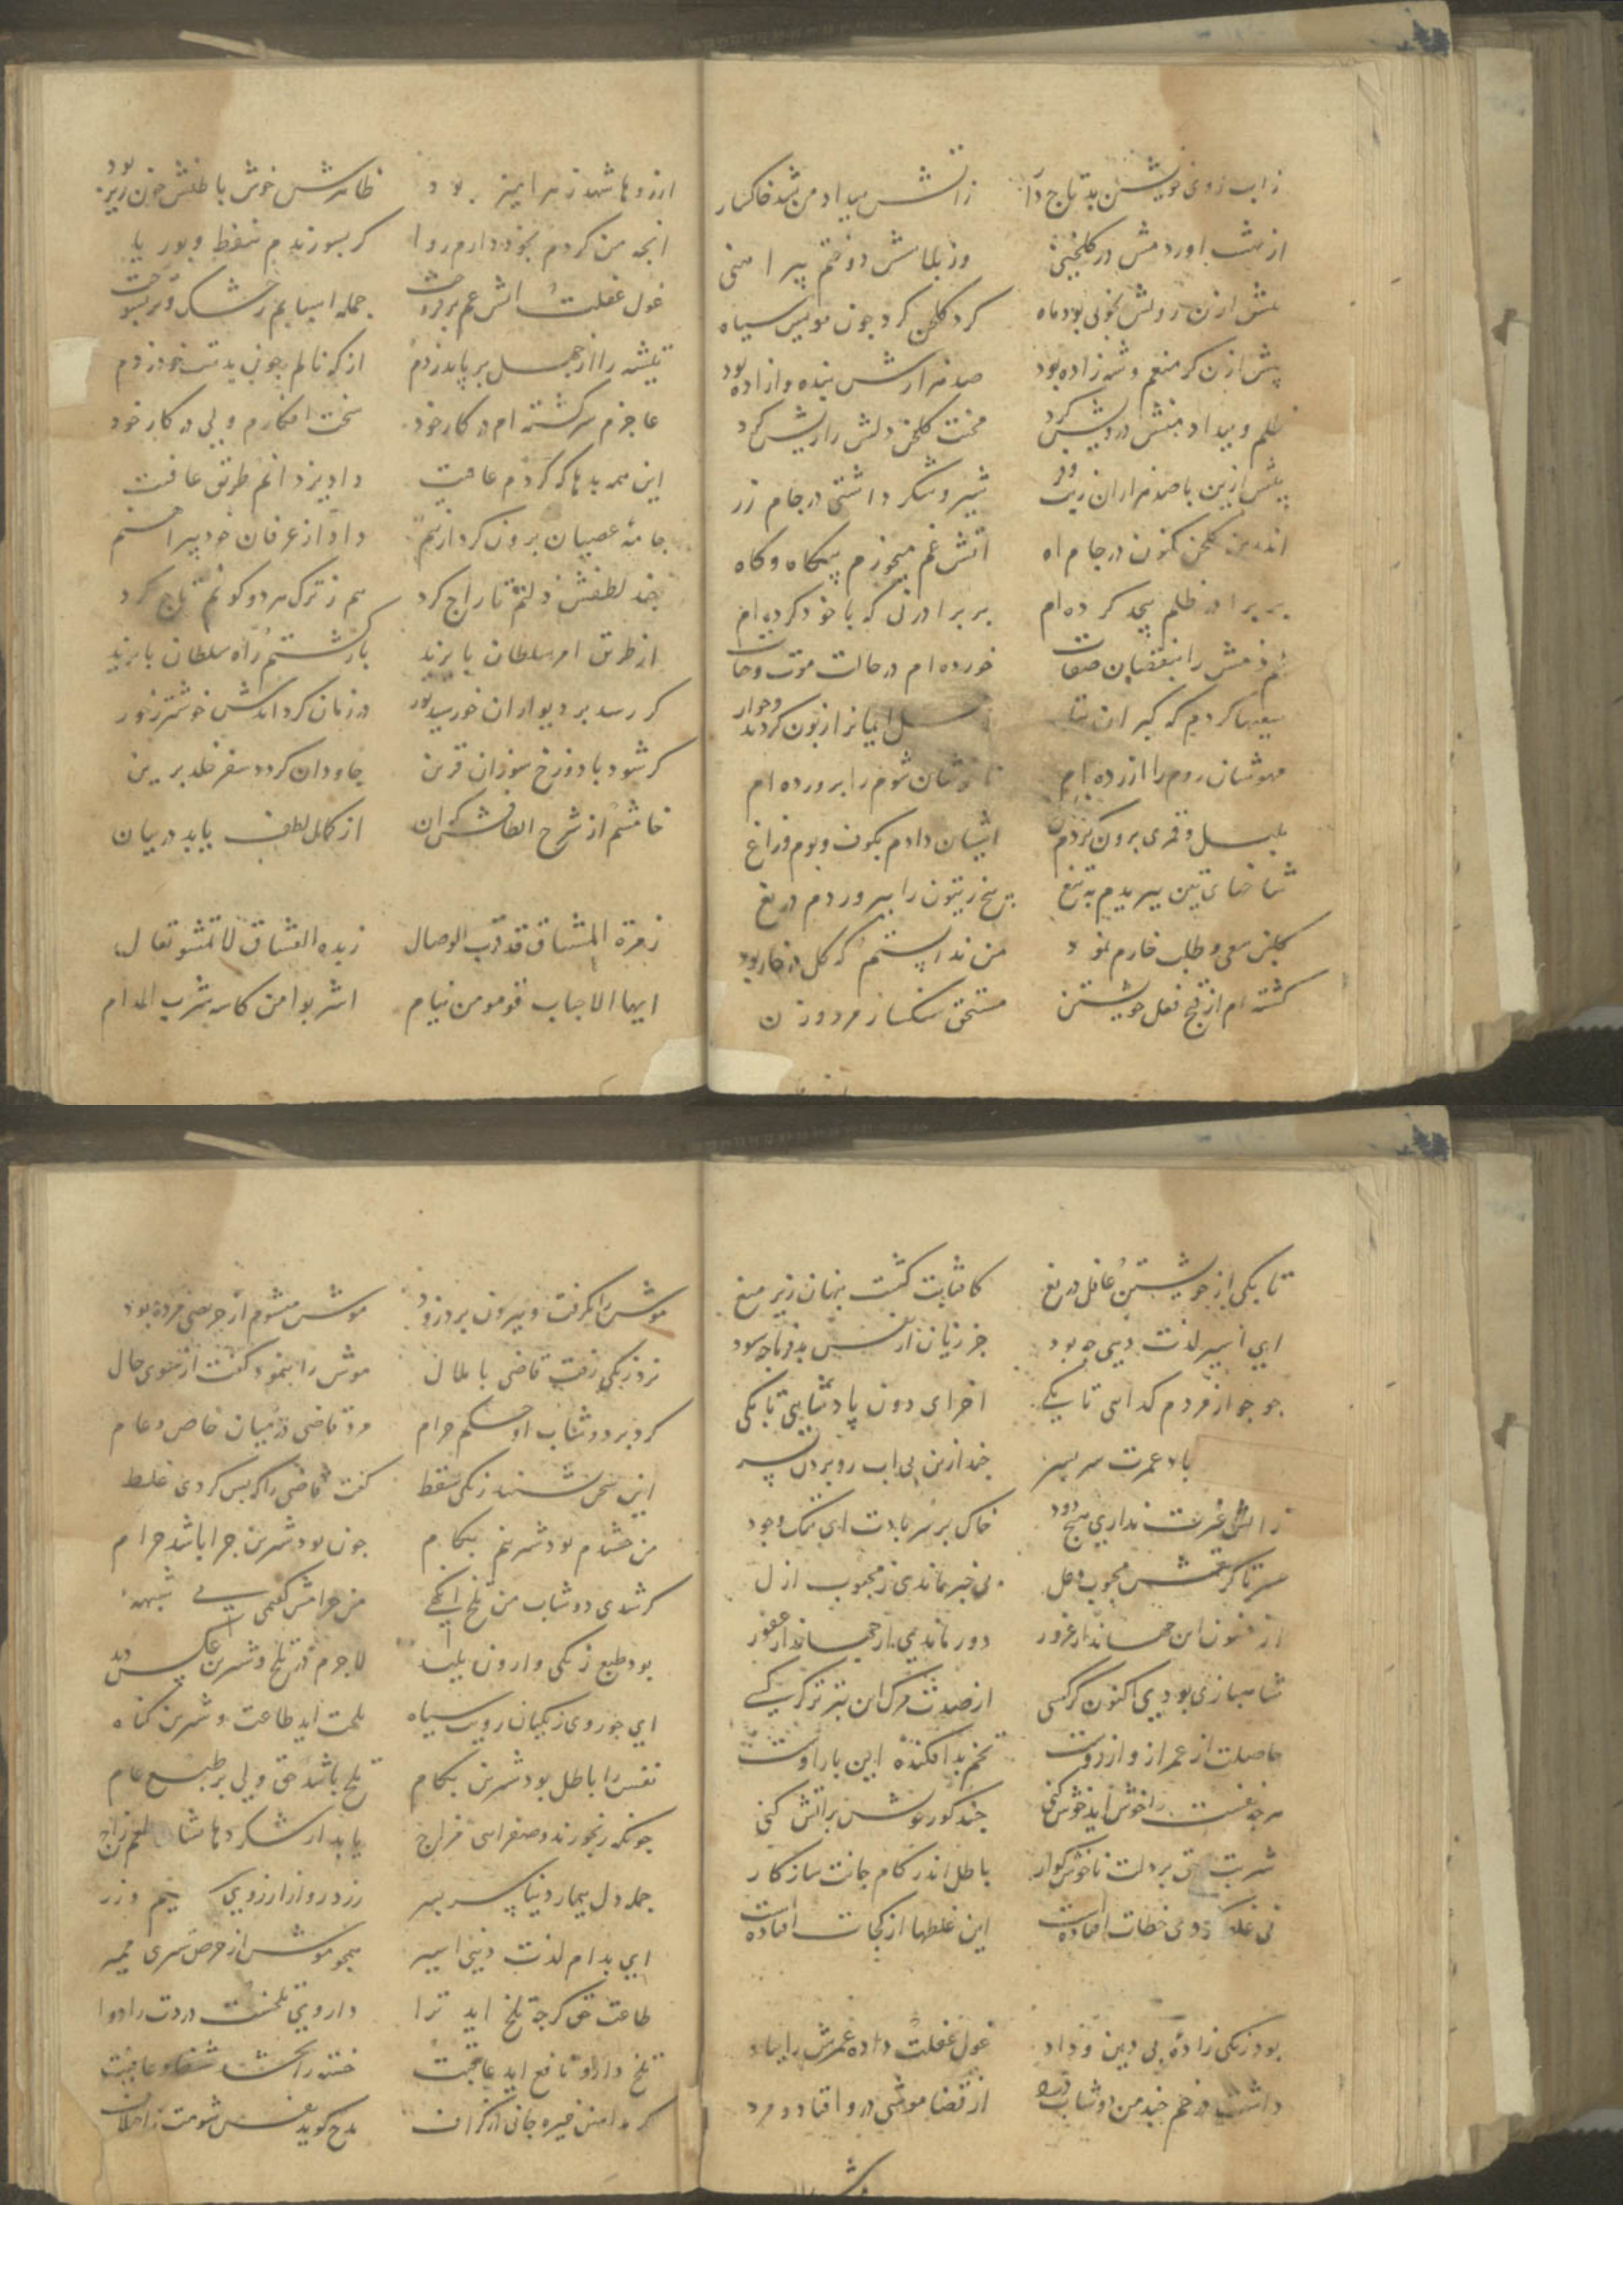 زاب روی خویشتن بد تاج دا زاتش بیداد من شد خاکسار
از بهشت اوردمش در کلخنی وز بلاسش دوختم پیراهنی
پیش ازن رویش بخوبی بود ماه کرد کلخن کرد چون مویش سیاه
پیش ازن کر منعم و شه زاده بود صد هزارش بنده و ازاده بود
ظلم و بیداد منش درویش کرد محنت کلخن دلش را ریش کرد
پیش ازین با صد هزاران زیب و فر شیر و شکر داشتی در جام زر
اندرین کلخن کنون در جام اه اتش غم میخورم بیکاه و کاه
بر برادر ظلم بیحد کرده ام بر برادر نی که با خود کرده ام
خورده ام در حالت موت و حیات
مهوشان روم را ازرده ام شان شوم را پرورده ام
بلبل و قمری برون کردم اشیان دادم بکوف و بوم و زاغ
شاخهای تین ببریدم به تیغ بیخ زیتون را نپروردم دریغ
کلبن سعی و طلب خارم نمود من ندانستم که کل در خار بود
کشته ام از قبح فعل خویشتن مستحق سنکسار مرد و زن
ارزوها شهد زهرامیز بود ظاهرش خوش باطنش خون ریز بود
انچه من کردم بخود دارم روا کر بسوزندم بنفط و بوریا
غول غفلت اتش غم برفروخت جمله اسبابم ز خشک و تر بسوخت
تیشه را از جهل بر پا بد زدم از که نالم چون بدست خود زدم
عاجزم سرکشته ام در کار خود سخت افکارم ولی در کار خود
این همه بدها که کردم عاقبت داد یزدانم طریق عافیت
جامه عصیان برون کرد از تنم داد از عرفان خود پیراهنم
جذب لطفش ذلتم تاراج کرد هم ز ترک هر دو کونم تاج کرد
از طریق امر سلطان بایزید بازکشتم راه سلطان بایزید
کر رسد بر دیو ازان خورشید نور در زمان کردد اندش خوشتر ز حور
کر شود با دوزخ سوزان قرین جاودان کردد سقر خلد برین
خامشم از شرح الطافش کزان از کمال لطف باید در بیان
زمرة المشتاق قد قرب الوصال زبده العشاق لا تمشو تعال
ایها الاحباب قوموا من نیام اشربوا من کاسه شرب المدام
تا بکی از خویشتن غافل دریغ کافتابت کشت پنهان زیر میغ
ای اسیر لذت دینی چه بود جز زیان از نفس بدفرما چه سود
جو جو از مردم کدایی تا بکی اخر ای دون پادشاهی تا بکی
باد عمرت سر بسر چند ازین بی اب رو بردن بسر
ز اتش غیرت نداری هیچ دود خاک بر سر بادت ای ننک وجود
بی خبر ماندی ز محبوب ازل
از فنون این جهاندار غرور دور ماندی از جهاندار غفور
شاهبازی بودیی اکنون کرکسی از صدت مرک این بتر تر کر کسی
حاصلت از عمر از و ارزوست تخم بد افکنده این بار اوست
هرچه نفست را خوش اید خوش کنی چند کوری خویش بر اتش کنی
شربت حق بر دلت ناخوش کوار باطل اندر کام جانت سازکار
نی غلط روی خطات افتاده است این غلطها از کجات افتاده است
بود زنکی زاده بی دین و داد غول غفلت داده عمرش را بباد
داشت در خم چند من دوشاب از قضا موشی درو افتاد و مرد
موش را بکرفت و بیرون برد زود موش میشوم از حریصی مرده بود
نزد زنکی رفت قاضی با ملال موش را بنمود و کفت از سوی حال
کرد بر دوشاب او حکم حرام مرد قاضی در میان خاص و عام
این سخن نشنید زنکی سقط کفت قاضی را که بس کردی غلط
من چشیدم بود شیرینم بکام چون بود شیرین چرا باشد حرام
کر شدی دوشاب من تلخ انکهی من حرامش کفتمی بی شبهه
بود طبع زنکی وارون پلید لاجرم در تلخ و شیرین عکس دید
ای چو روی زنکیان رویت سیاه تلخت اید طاعت و شیرین کناه
نفس را باطل بود شیرین بکام تلخ باشد حق ولی بر طبع عام
چونکه رنجورند و صفرایی مزاج یابد از شکر دهانشان طعم زاج
جمله دل بیمار دنیا سر بسر زرد رو از ارزوی سیم و زر
ای بدام لذت دنیی اسیر همچو موش از حرص شیرینی ممیر
طاعت حق کرچه تلخ اید ترا داروی تلخست دردت را دوا
تلخ دارو نافع اید عاقبت خسته را بخشد شفا و عافیت